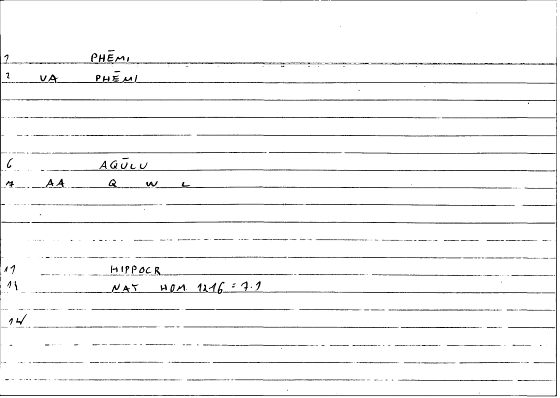 1 PHĒMI
2 VA PHĒMI
6 AQŪLU
7 AA Q W L
HIPPOCR
NAT HOM 1216 = 7.1
14